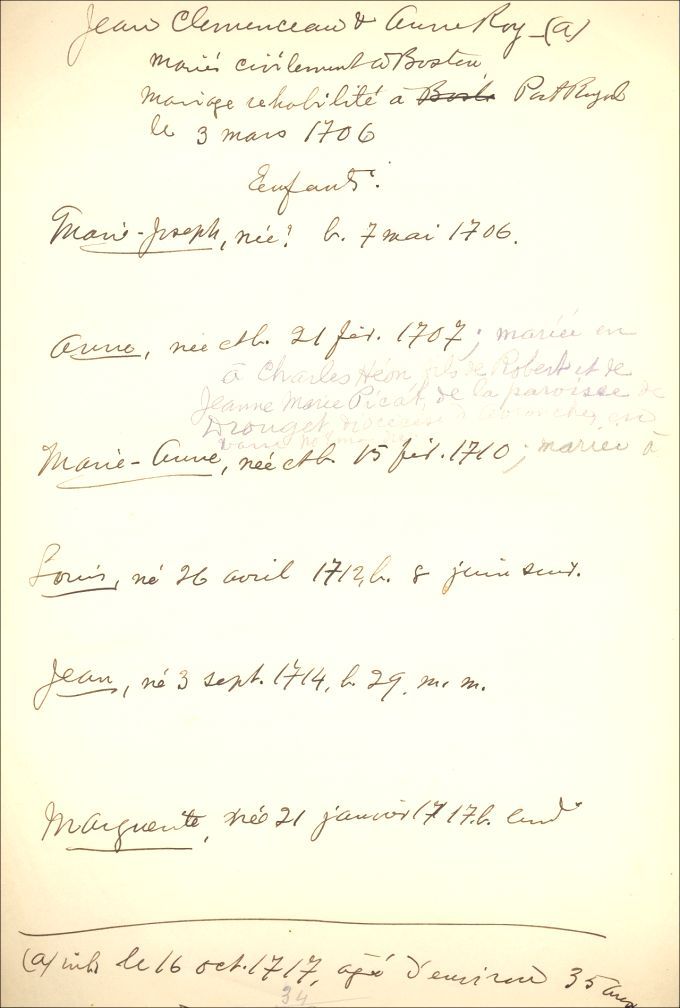 Jean Clemenceau & Anne Roy - (a)
mariés civilement à Boston
mariage rehabilité à Bost Port Royal
le 3 mars 1706
Enfants:
Marie-Joseph, née? b. 7 mai 1706.
Anne, née et b. 21 fév. 1707; mariée en
à Charles Héon, fils de Robert et de
Jeanne Marie Picat, de la paroisse de
Drouget, diocèse d'Avranches, en
Marie-Anne, née et b. 15 fév. 1710; mariée à
Louis, né 26 avril 1712, b. 8 juin suiv.
Jean, né 3 sept. 1714, b. 29, m. m.
Marguerite, née 21 janvier 1717. b. lend
(a) inh. le 16 oct. 1717, agé d'environ 35 ans
34